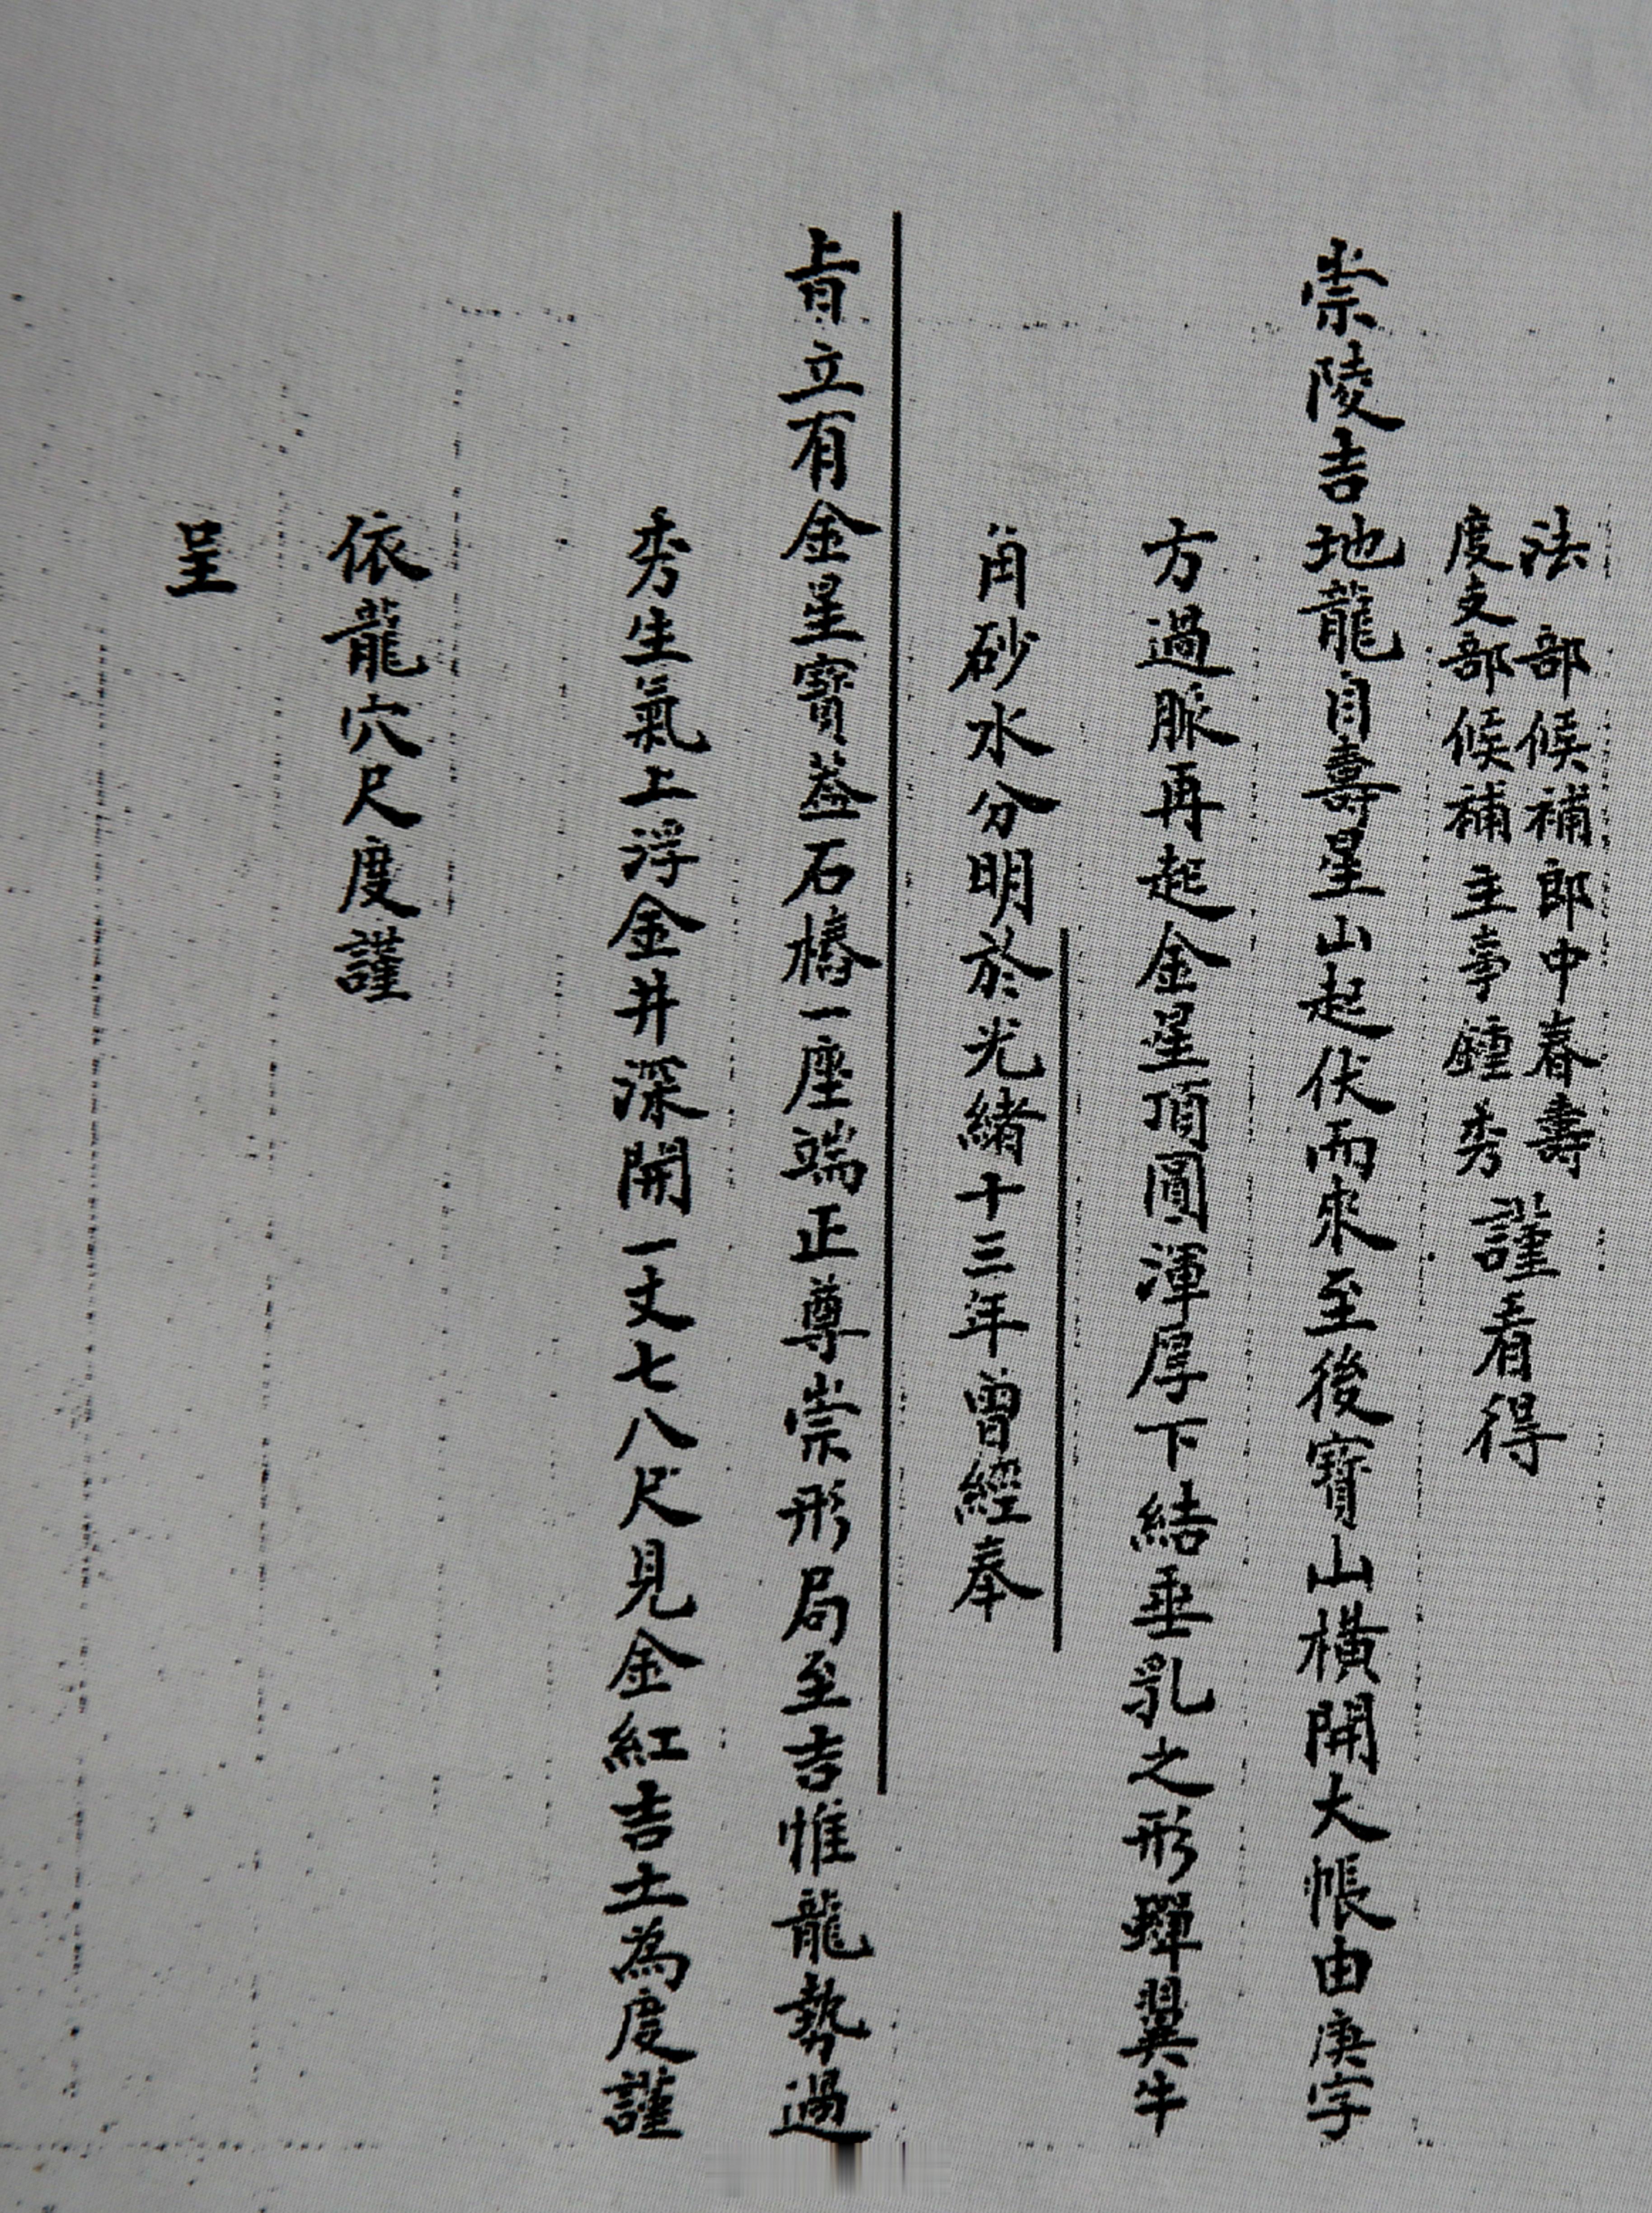 法部候補郎中春壽
度支部候補主事鍾秀
謹看得
崇陵吉地龍自壽星山起伏而來至後寶山橫開大帳由庚字
方過脈再起金星頂圓渾厚下結垂乳之形蟬翼牛
角砂水分明於光緒十三年曾經奉
旨立有金星寶蓋石樁一座端正尊崇形局至吉惟龍勢過
秀生氣上浮金井深開一丈七八尺見金紅吉土為度謹
依龍穴尺度謹
呈